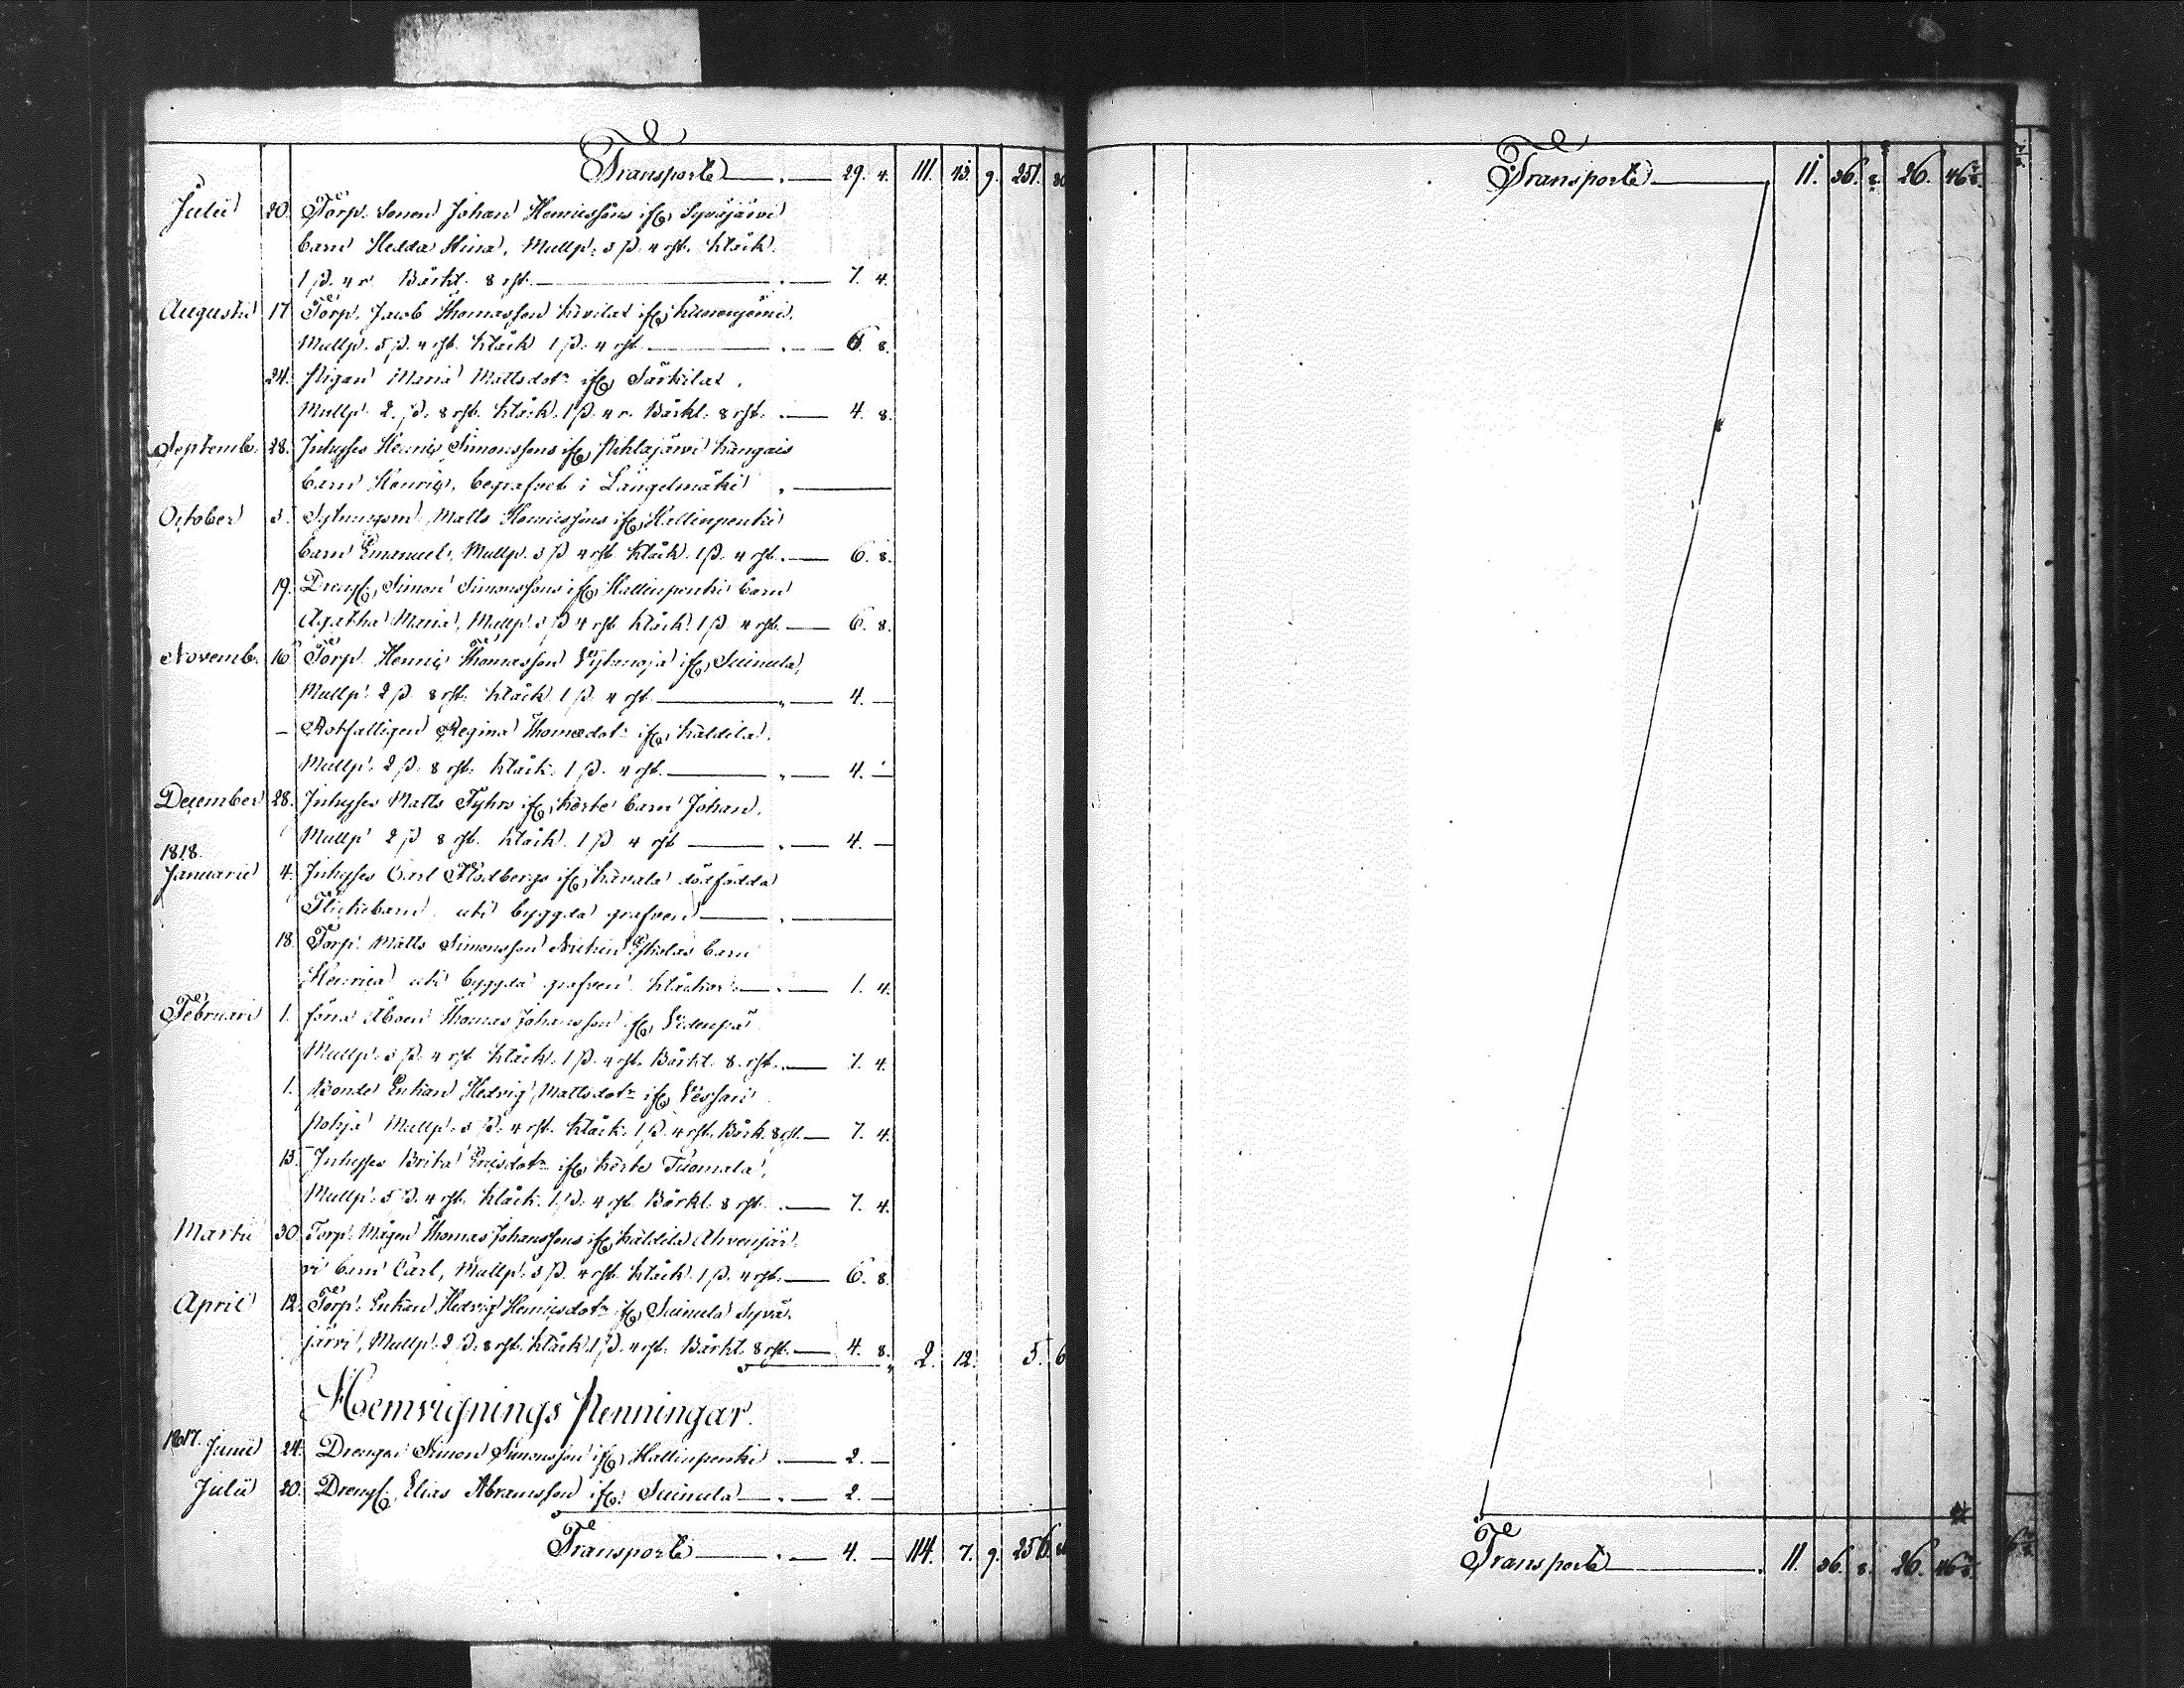 Transporte — 29. 4. 111. 43. 9. 251. 30
Julii 20. Torp. Sonen Johan Henricssons ifr. Syväjärvi
barn Hedda Stina, Mullp. 3 ß. 4 rst. klåck.
1 ß. 4 r. Bårkl. 8 rst. — 7. 4.
Augusti 17 Torp. Jacob Thomasson ifr.
Mullp. 5 ß. 4 rst. klåck 1 ß. 4 rst — 6. 8.
24. Pigan Maria Mattsdotr ifr. Särkilax,
Mullp. 2. ß. 8 rst. klåck. 1 ß. 4 r. Bårkl. 8 rst. — 4. 8.
Septemb. 28. Inhyses Henric Simonssons ifr. Pihlajärvi Kangais
barn Henric, begrafvet i Längelmäki —
October 5. Sytningsm. Matts Henricssons ifr. Hallinpentti
barn Emanuel, Mullp. 5 ß 4 rst klåck. 1 ß. 4 rst. — 6. 8.
19. Drengs. Simon Simonssons ifr. Hallinpentti barn
Agatha Maria, Mullp. 5 ß 4 rst klåck. 1 ß. 4 rst. — 6. 8.
Novemb. 16 Torp. Henric Thomasson ifr. Suinula,
Mullp. 2 ß. 8 rst. klåck 1 ß. 4 rst — 4. —
— Rotfattigen Regina Thomædotr ifr. Käldilä,
Mullp. 2 ß. 8 rst. klåck. 1 ß. 4 rst. — 4. —
December 28. Inhyses Matts Tyhrs ifr. Körte barn Johan,
Mullp 2 ß 8 rst. klåck. 1 ß 4 rst — 4. —
1818.
Januarii 4. Inhyses Carl Flodbergs ifr. Kävälä dödfödda
Flickebarn uti byggda grafven —
18. Torp. Matts Simonsson barn
Henrica uti byggda grafven klåckor. — 1. 4.
Februari 1. Förra Åboen Thomas Johansson ifr. Videnpä
Mullp. 5 ß. 4 rst klåck. 1 ß. 4 rst. Bårkl. 8. rst. — 7. 4.
1. Bonde Enkan Hedvig Mattsdotr ifr. Vessari
Pohja Mullp. 5 ß. 4 rst. klåck. 1 ß. 4 rst. Bårk. 8 rst. — 7. 4.
13. Inhyses Brita Ericsdotr ifr. Körte Tuomala,
Mullp. 5 ß. 4 rst. klåck. 1 ß. 4 rst Bårkl. 8 rst. — 7. 4.
Martii 30. Torp. Mågen Thomas Johanssons ifr. Käldilä Ahvenjär-
vi barn Carl, Mullp. 5 ß. 4 rst. klåck. 1 ß. 4 rst. — 6. 8.
April 12. Torp. Enkan Hedvig Henricsdotr ifr. Suinula Syvä-
järvi, Mullp. 2 ß. 8 rst. klåck. 1 ß. 4 rst. Bårkl. 8 rst. — 4. 8. 2. 12. 5. 6
Hemvignings Penningar.
1817. Junii 24. Drengen Simon Simonsson ifr. Hallinpentti — 2. —
Julii 20. Drengs. Elias Abramsson ifr. Suinula — 2. —
Transporte — 4. — 114. 7. 9. 256.
Transporte — 11. 36. 8. 26. 46
Transporte — 11. 36. 8. 26. 46